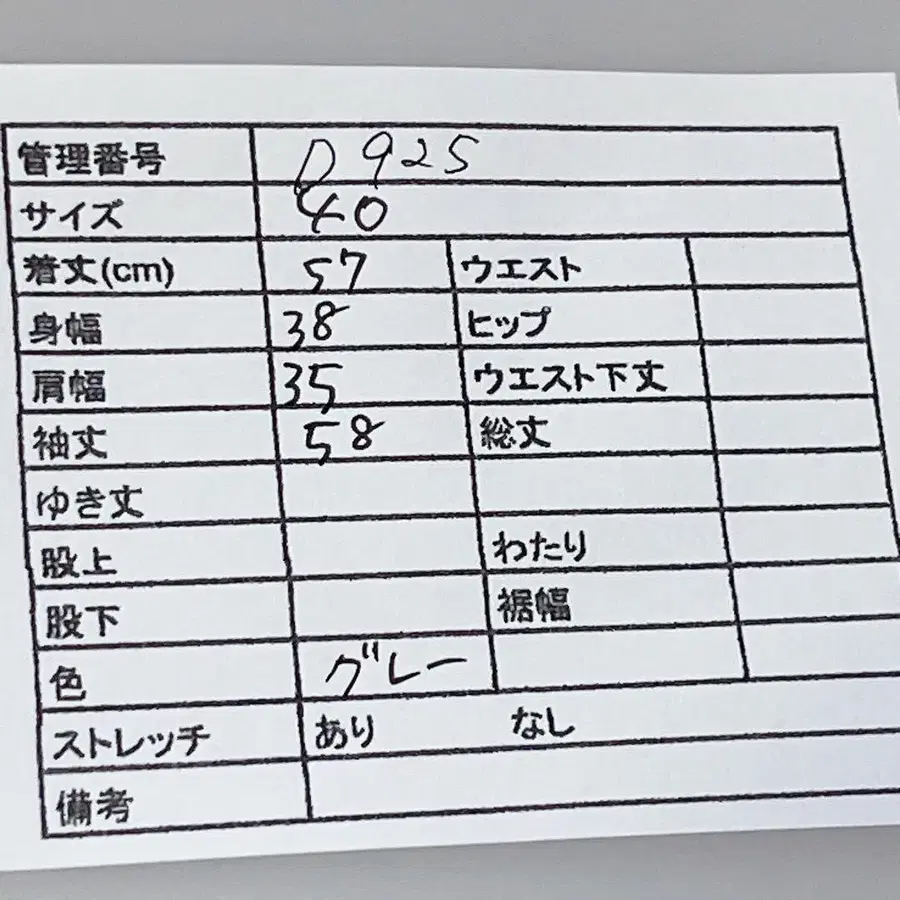 管理番号 D925
サイズ 40
着丈(cm) 57 ウエスト
身幅 38 ヒップ
肩幅 35 ウエスト下丈
袖丈 58 総丈
ゆき丈
股上 わたり
股下 裾幅
色 グレー
ストレッチ あり なし
備考